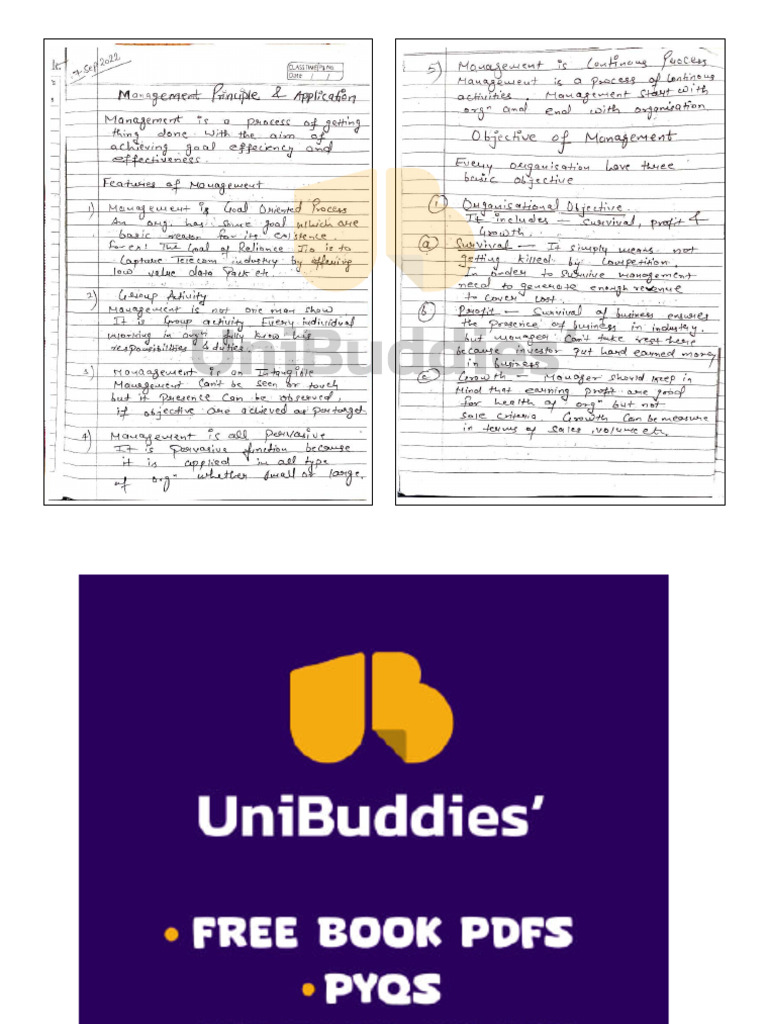 7 Sep 2022
DATE / /
Management Principle & Application
Management is a process of getting
thing done. With the aim of
achieving goal effeciency and
effectiveness.
Features of Management
1) Management is Goal Oriented Process
An org. has some goal which are
basic reason for its existence.
for ex: The Goal of Reliance Jio is to
Capture Telecom industry by offering
low value data pack etc.
2) Group Activity
Management is not one man show
It is Group activity Every individual
working in org. fully know his
responsibilities & duties.
3) Management is an Intangible
Management Can't be seen or touch
but it presence can be observed,
if objective are achieved as per target.
4) Management is all pervasive
It is pervasive function because
it is applied in all type
of orgn whether small or large.
5) Management is Continous Process
Management is a process of continous
activities. Management start with
orgn and end with organisation
Objective of Management
Every organisation have three
basic objective
1 Organisational Objective.
It includes - Survival, profit &
Growth.
a Survival - It simply means not
getting killed by competition.
In order to survive management
need to generate enough revenue
to cover cost.
b Profit - Survival of business ensures
the presence of business in industry.
but manager Can't take rest here
because investor put hard earned money
in business.
c Growth - Manager should keep in
Mind that earning profit are good
for health of orgn but not
sole criteria. Growth can be measure
in terms of sales, volume etc.
UniBuddies
UniBuddies'
• FREE BOOK PDFS
• PYQS